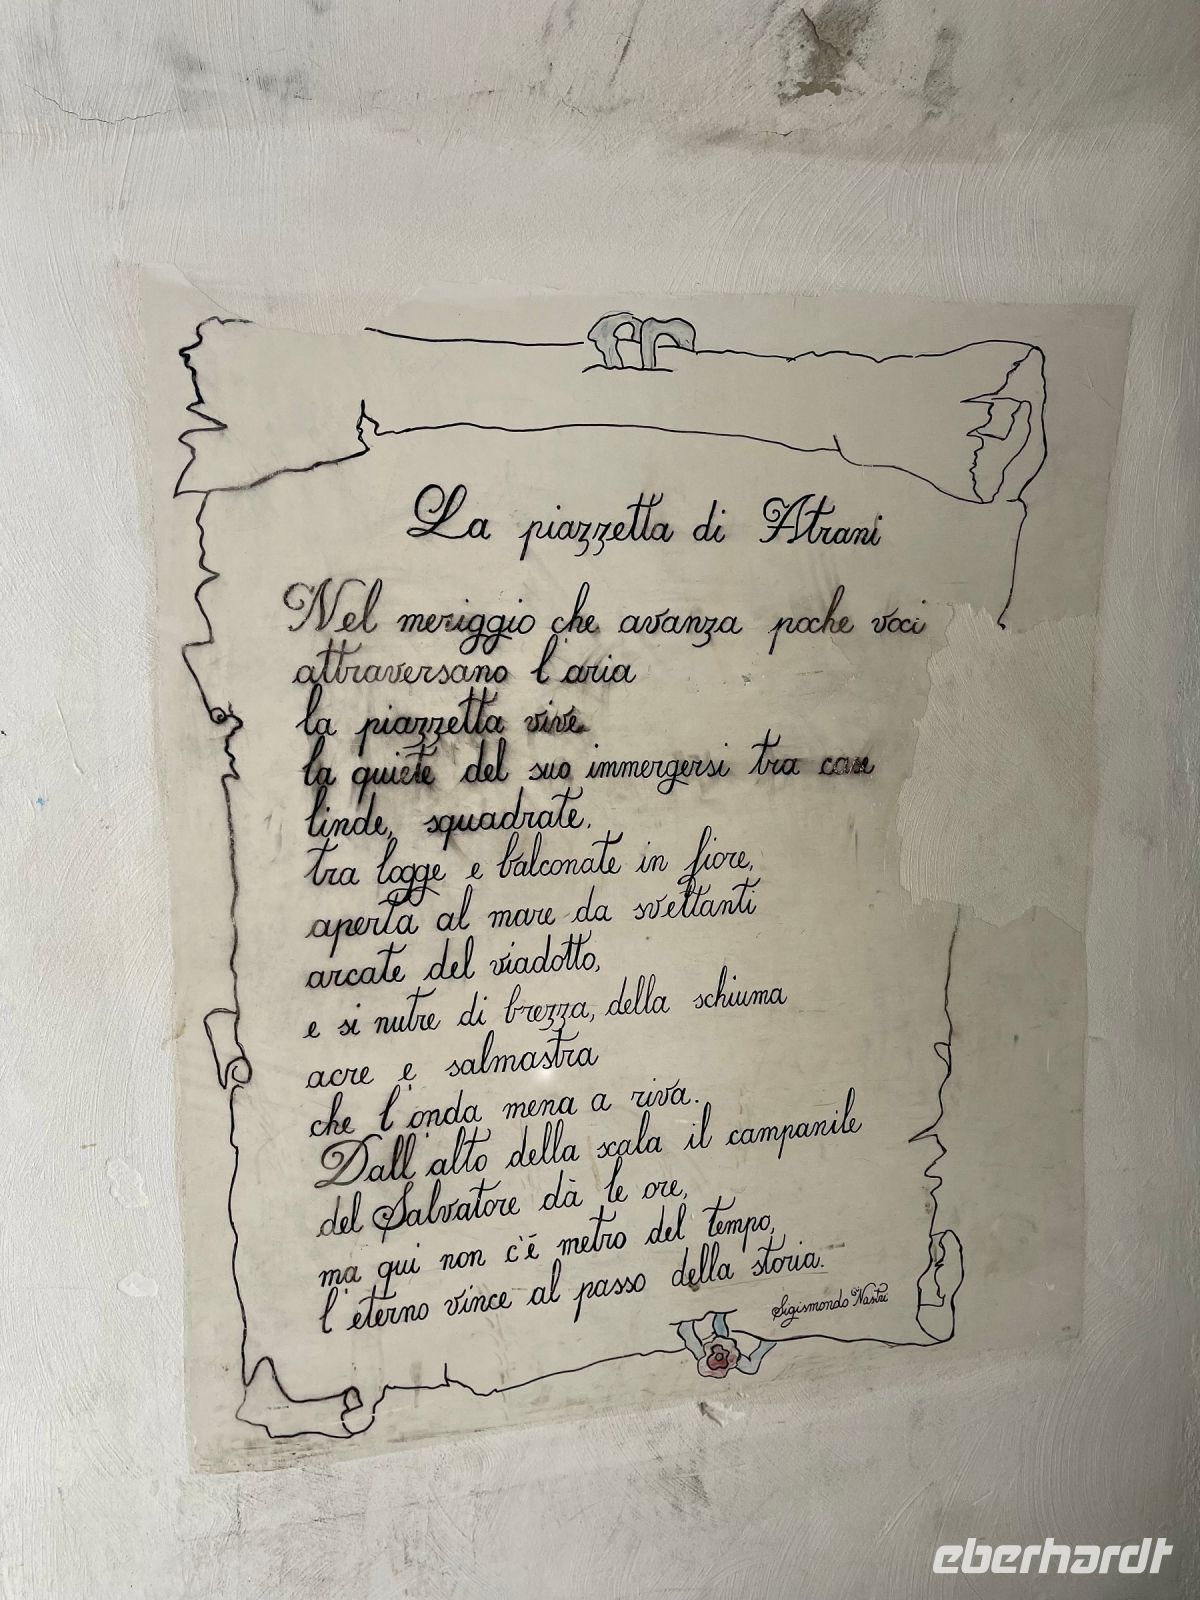 La piazzetta di Atrani
Nel meriggio che avanza poche voci
attraversano l'aria
la piazzetta vive
la quiete del suo immergersi tra case
linde, squadrate,
tra logge e balconate in fiore,
aperta al mare da svettanti
arcate del viadotto,
e si nutre di brezza, della schiuma
acre e salmastra
che l'onda mena a riva.
Dall'alto della scala il campanile
del Salvatore dà le ore,
ma qui non c'è metro del tempo,
l'eterno vince al passo della storia.
Sigismondo Nastri
eberhardt